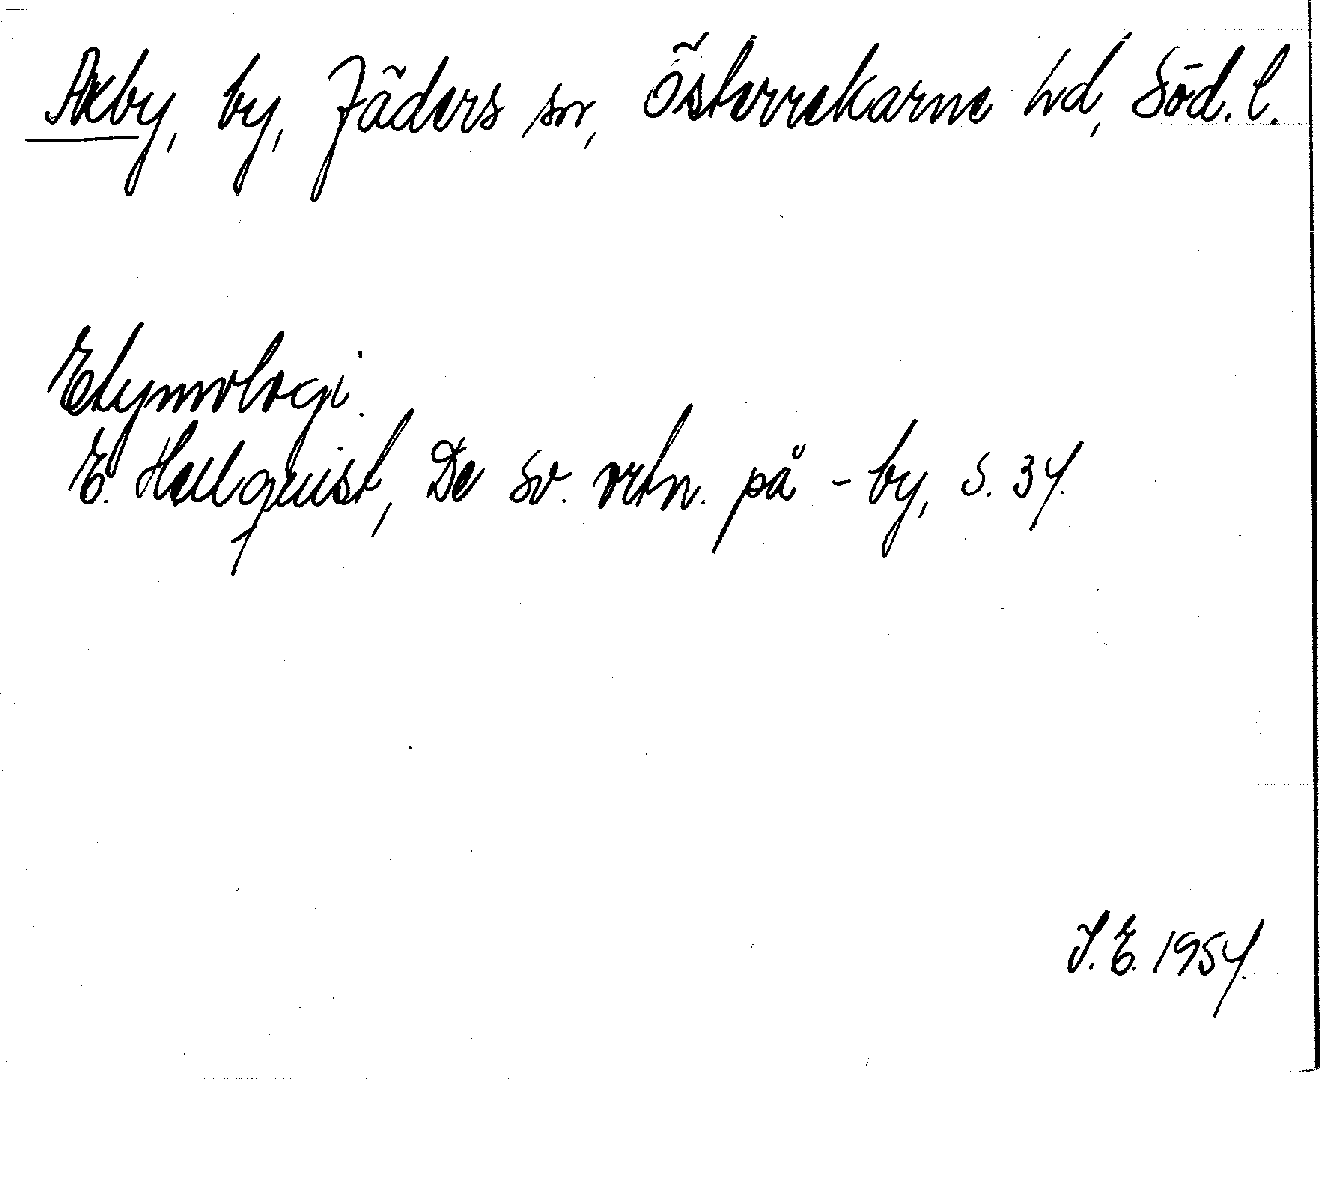 Axby, by, Jäders sn, Österrekarne hd, Söd. l.
Etymologi.
E. Hellquist, De sv. ortn. på -by, s. 34.
S. E. 1954.